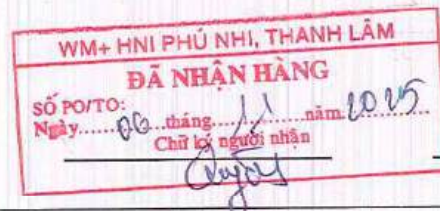 WM+ HNI PHÚ NHI, THANH LÂM
ĐÃ NHẬN HÀNG
SỐ PO/TO:
Ngày......06...tháng......11......năm.2025......
Chữ ký người nhận